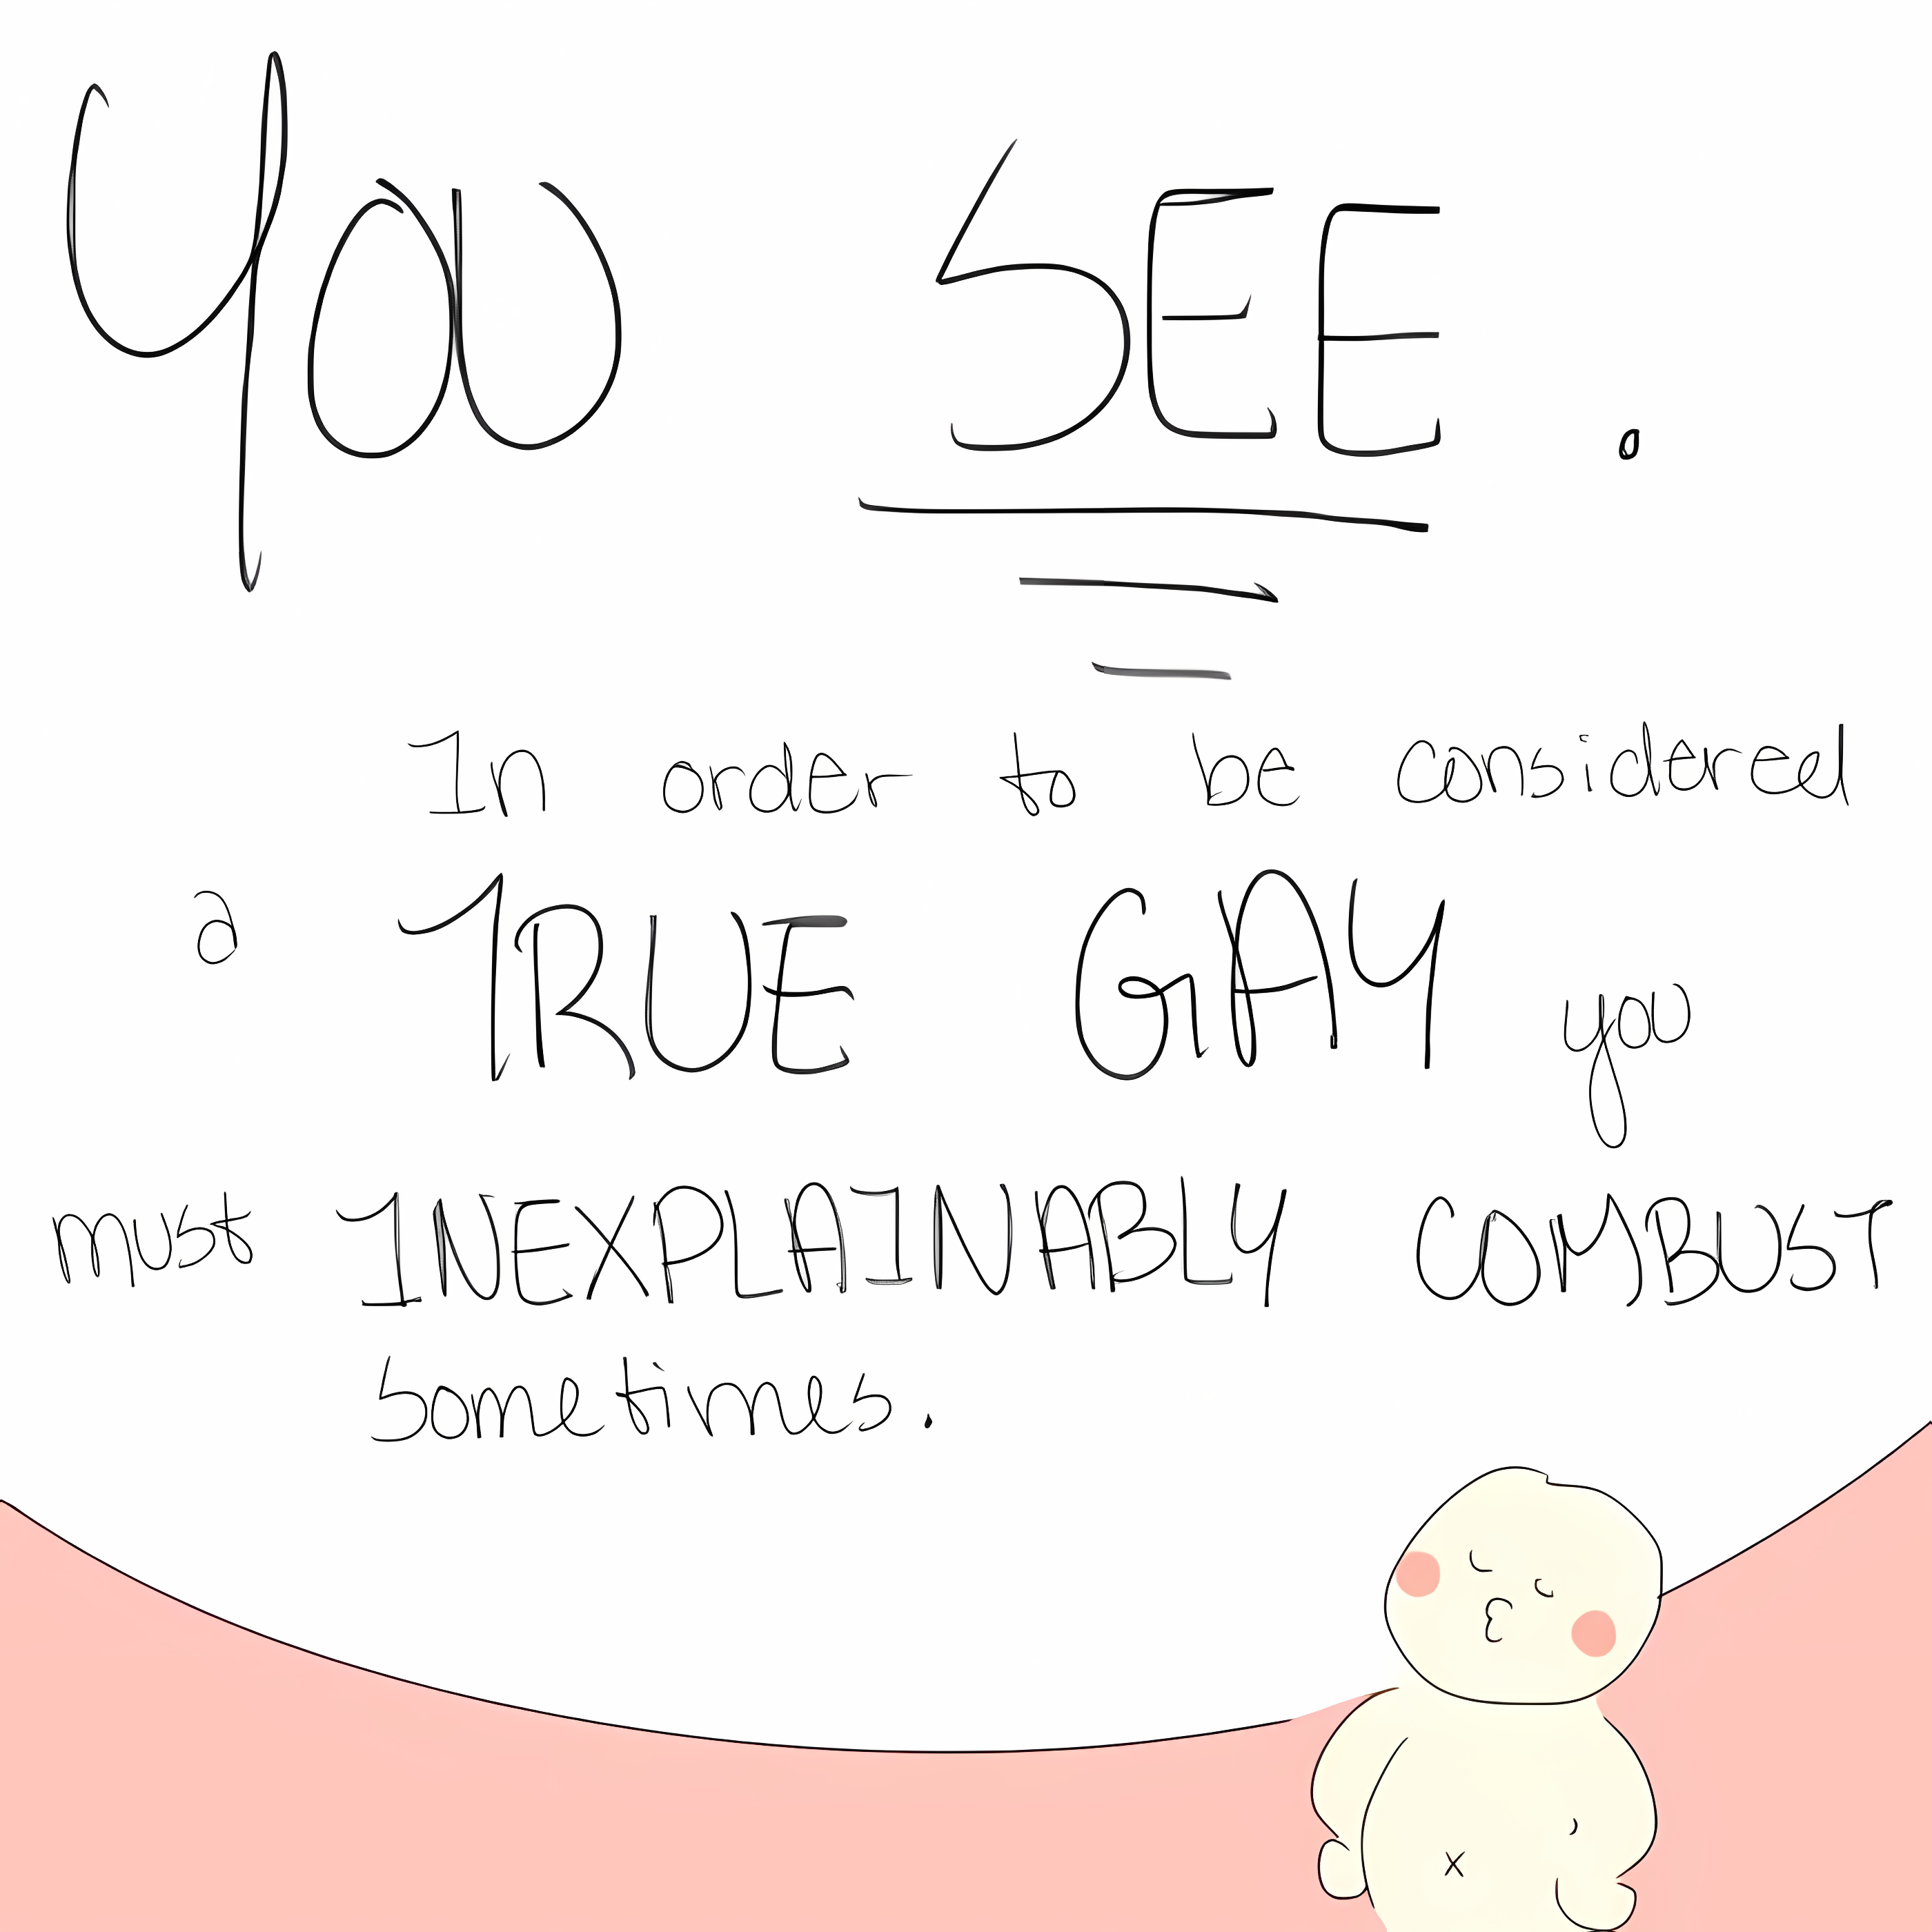 You SEE.
In order to be considered
a TRUE GAY you
must INEXPLAINABLY COMBUST
sometimes.